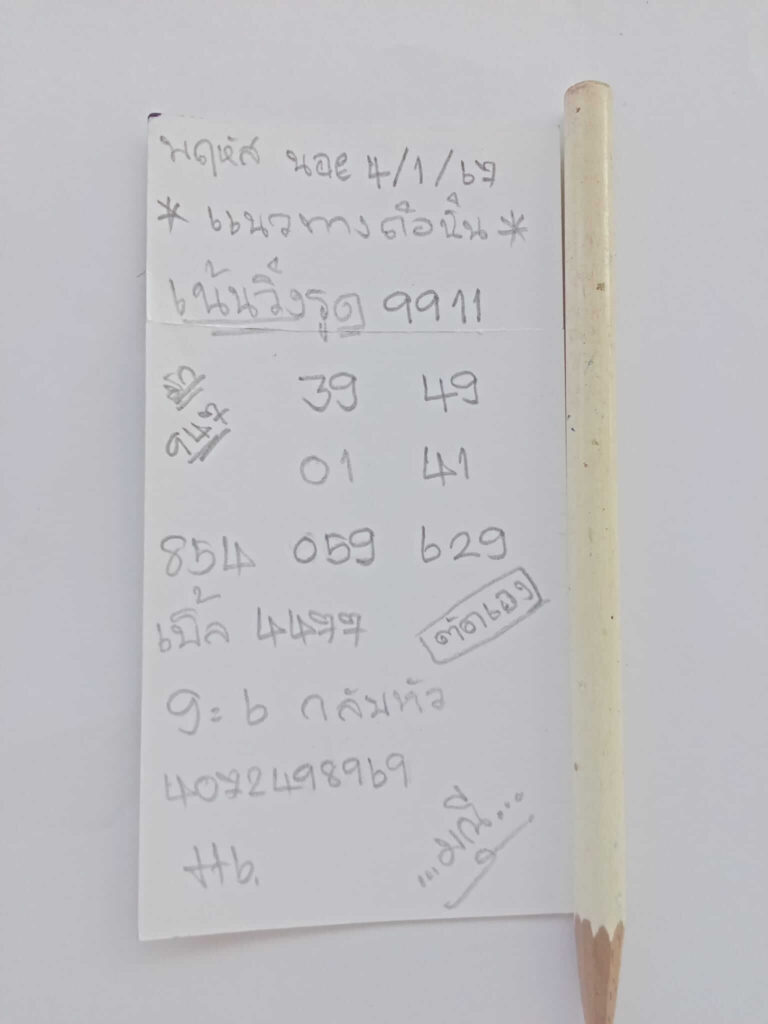 พฤหัส นอย 4/1/67
* แนวทางถือนั้น *
เน้นวิ่งรูด 9911
39 49
947
01 41
854 059 629
เบิ้ล 4477
ตัดเอง
9=6 กลับหัว
4072498969
HB.
...มณี...